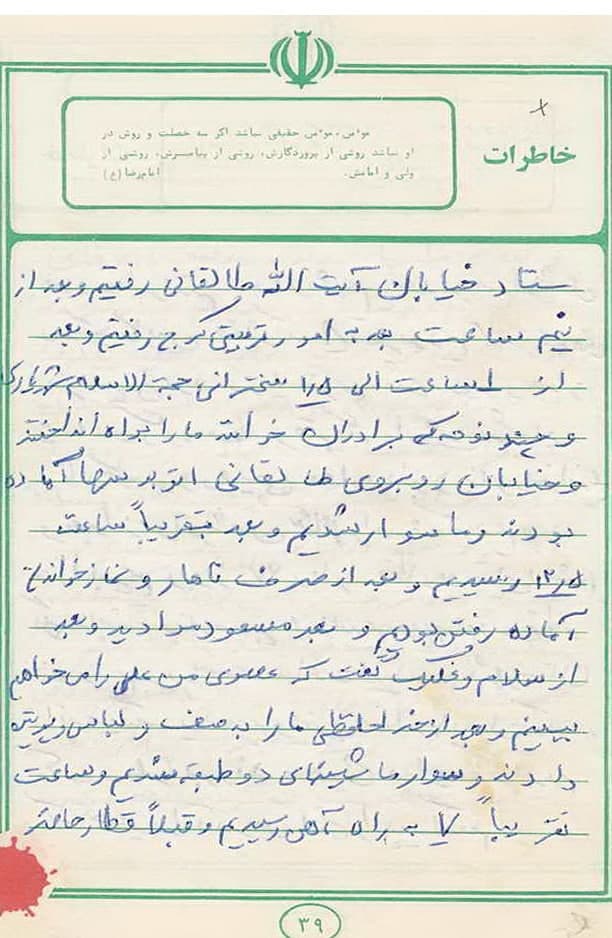 خاطرات
موءمن، موءمن حقیقی نباشد اگر سه خصلت و روش در
او نباشد روشی از پروردگارش، روشی از پیامبرش، روشی از
ولی و امامش. امام‌رضا (ع)
ستاد خیابان آیت الله طالقانی رفتیم و بعد از
نیم ساعت بعد به امور تربیتی کرج رفتیم و بعد
از ۱ ساعت الی ۱/۵ سخنرانی حجة الاسلام
و چند نوحه که برادران خواندند ما را براه انداختند
و خیابان روبروی طالقانی اتوبوسها آماده
بودند و ما سوار شدیم و بعد تقریباً ساعت
۱۲/۵ رسیدیم و بعد از صرف ناهار و نماز خواندن
آماده رفتن بودیم و بعد مسعود مرا دید و بعد
از سلام و علیک گفت که عموی من علی را می‌خواهم
ببینم و بعد از خداحافظی ما را به صف و لباس
دادند و سوار ماشینهای دو طبقه شدیم و ساعت
تقریباً ۷ به راه آهن رسیدیم و قبلاً قطار حاضر
۳۹